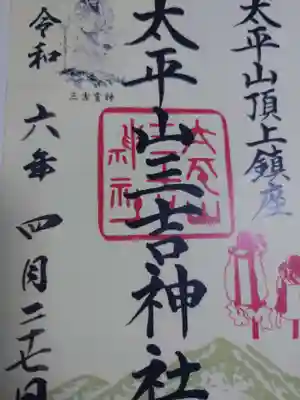 太平山頂上鎮座
太平山三吉神社
三吉霊神
令和六年四月二十七日